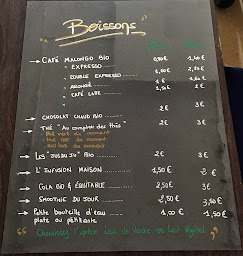 Boissons
CAFÉ MALONGO BIO
" EXPRESSO 0,80€ 1,40€
" DOUBLE EXPRESSO 1,60€ 2,80€
" ALLONGÉ 1€ 1,60€
" CAFÉ LATTE 1,50€ 2€
" 2€ 3€
CHOCOLAT CHAUD BIO 2€ 3€
THÉ "Au comptoir des thés"
thé vert du moment
thé noir du moment
du moment
LES JUSDUJU" BIO 2€ 3€
L'INFUSION MAISON 1,50€ 2€
COLA BIO & ÉQUITABLE 2,50€ 3,50€
SMOOTHIE DU JOUR 2,50€ 3€
Petite bouteille d'eau 1,00€ 1,50€
plate ou pétillante
Choisissez l'option lait de Vache ou Lait Végétal